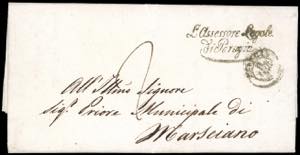 L'Assessore Legale
di Perugia
2
All' Illmo Signore
Sigr. Priore Municipale di
Marsciano